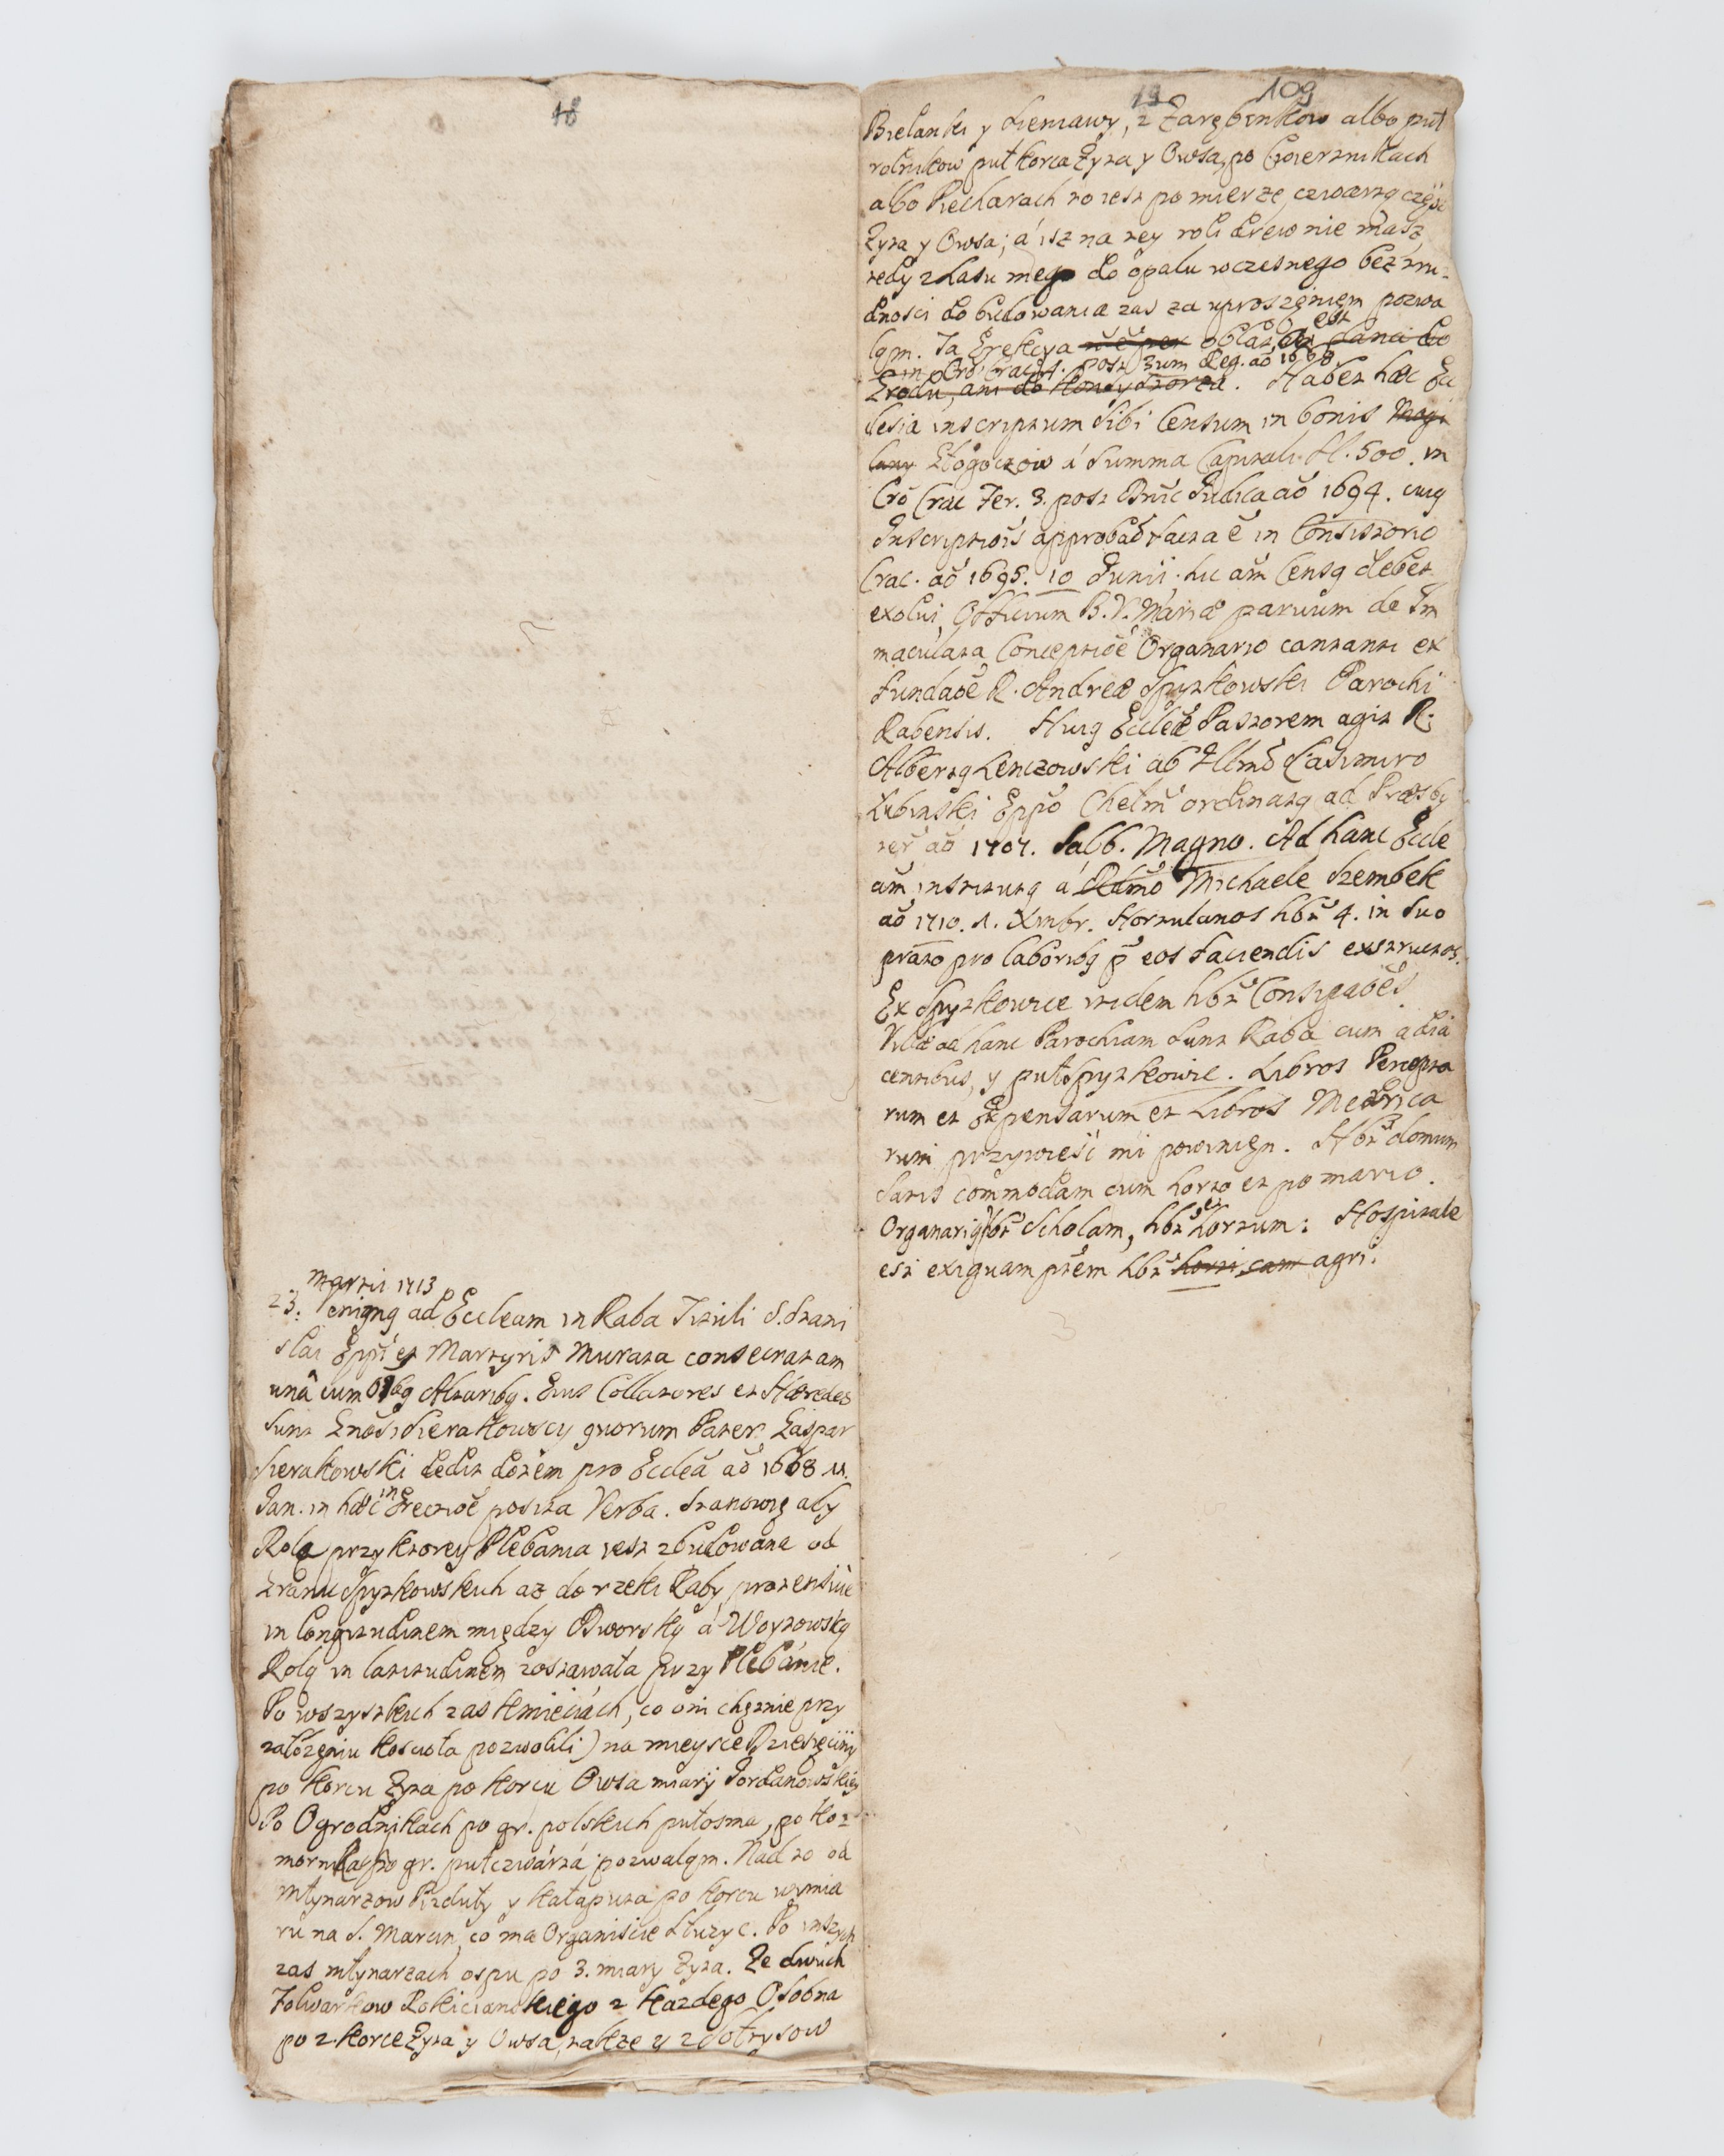 18
Martii 1713
23. Venimus ad Eccleam in Raba Tituli S. Stani
slai Eppi et Martyris Murata consecratam
unâ cum 6bq Altaribq. Eius Collatores et Hæredes
sunt Gnosi Sierakowscy quorum Pater Gaspar
Sierakowski dedit dotem pro Ecclea ao 1668 11.
Jan. in hæc in Erectioe posita Verba. Stanowię aby
Rola przy ktorey Plebania iest zbudowana od
Granic Spytkowskich aż do rzeki Raby protensive
in longitudinem między Dworską á Woytowską
Rolą in latitudinem zostawała przy Plebánie.
Po wszystkich zas kmieciách, co oni chętnie przy
założęniu koscioła pozwolili) na mieysce Dziesięciny
po korcu Żyta po korcu Owsa miary Jordanowskiey
Po Ogrodnikach po gr. polskich pułosma, po ko-
mornikach po gr. pułczwártá pozwaląm. Nad to od
młynarzow Pizduły y kałaputa po korcu wymia
ru na S. Marcin, co ma Organiscie słuzyc. Po inszych
zas młynarzach ospu po 3. miary Żyta. Ze dwuch
Folwarkow Rokicianskiego z kazdego Osobna
po 2 korce Żyta y Owsa, także y z dołrysow
19 109
Bielanki y Sieniawy, z Zarębnikow albo puł
rolnikow puł korca Żyta y Owsa, po Czwiertnikach
abo Piecharach to iest po mierze, czwartą częsc
Żyta y Owsa; á isz na tey roli drew nie masz
tedy z Lasu mego do opału wczesnego bez tru-
dnosci do budowania zas za uproszęnięm pozwa
ląm. Ta Erekcya oblat est
in Cro Crac. 4. post 3um Reg. ao 1668
Grodu, ani do Konsystorza. Habet hæc Ec
lesia inscriptum sibi Censum in bonis Mogi
lany Głogoczow á Summa Capitali fl. 500. in
Cro Crac Fer. 3. post Dnic Judica ao 1694. cuiq
Inscriptiois approbao facta e in Consistorio
Crac. ao 1695. 10 Junii. hic am Censq debet
exolui, Officium B. V. Mariæ paruum de Im
maculata Conceptioe Organario cantanti ex
Fundaoe R. Andreæ Spytkowski Parochi
Rabensis. Huiq Eccleæ Pastorem agit R.
Albertq Lenczowski ab Illmo Casimiro
Łubinski Eppo Chelm ordinatq ad Præsby
ter ao 1707. Sabb. Magno. Ad hanc Eccle
am institutq á Rdmo Michaele Szembek
ao 1710. 1. Xmbr. Hortulanos hbt 4. in suo
prato pro laboribq p eos faciendis exstructos.
Ex Spytkowice itidem hbt Consigaoes
Villæ ad hanc Parochiam sunt Raba cum adia
centibus, y puł Spytkowic. Libros Percepto
rum et Expensarum et Libros Metrica
rum przywieść mi powinięn. Hbt domum
satis commodam cum horto et pomario.
Organariq hbt Scholam, hbt et hortum: Hospitale
est exiguam ptem hbt horti cum agri.